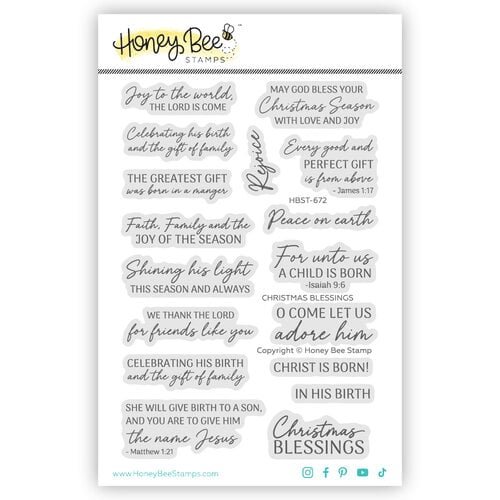 Honey Bee
STAMPS
™
Joy to the world,
THE LORD IS COME
Celebrating his birth
and the gift of family
THE GREATEST GIFT
was born in a manger
Faith, Family and the
JOY OF THE SEASON
Shining his light
THIS SEASON AND ALWAYS
WE THANK THE LORD
for friends like you
CELEBRATING HIS BIRTH
and the gift of family
SHE WILL GIVE BIRTH TO A SON,
AND YOU ARE TO GIVE HIM
the name Jesus
- Matthew 1:21
Rejoice
MAY GOD BLESS YOUR
Christmas Season
WITH LOVE AND JOY
Every good and
PERFECT GIFT
is from above
- James 1:17
HBST-672
Peace on earth
For unto us
A CHILD IS BORN
-Isaiah 9:6
CHRISTMAS BLESSINGS
O COME LET US
adore him
Copyright © Honey Bee Stamp
CHRIST IS BORN!
IN HIS BIRTH
Christmas
BLESSINGS
www.HoneyBeeStamps.com